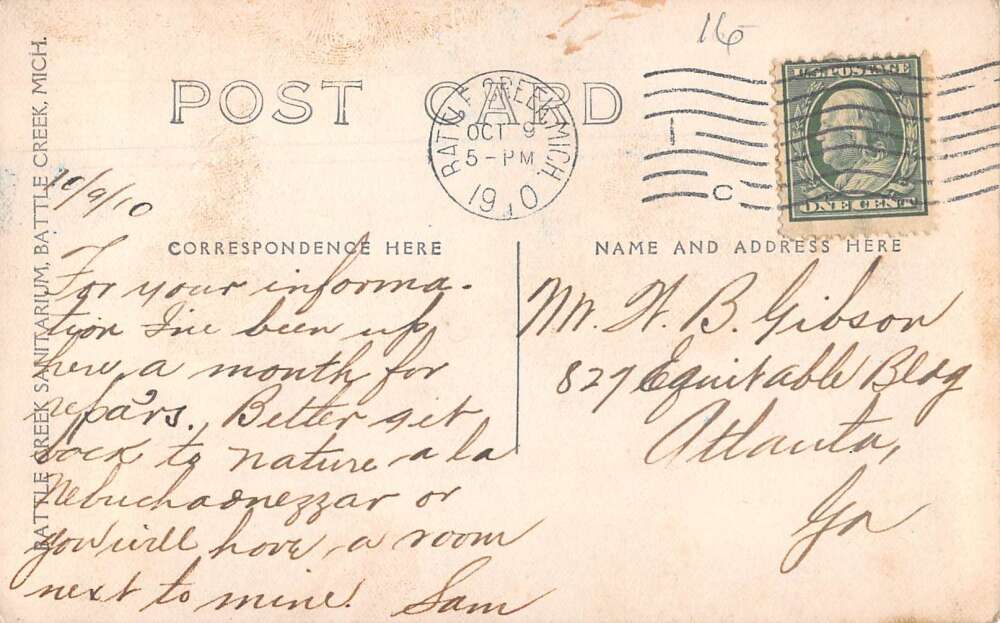 16
POST CARD
BATTLE CREEK, MICH.
OCT 9
5 - PM
1910
1
C
U.S. POSTAGE
ONE CENT
BATTLE CREEK SANITARIUM, BATTLE CREEK, MICH.
10/9/10
CORRESPONDENCE HERE
For your informa-
tion I've been up
here a month for
repairs. Better get
back to nature a la
Nebuchadnezzar or
you will have a room
next to mine! Sam
NAME AND ADDRESS HERE
Mr. W. B. Gibson
827 Equitable Bldg
Atlanta,
Ga